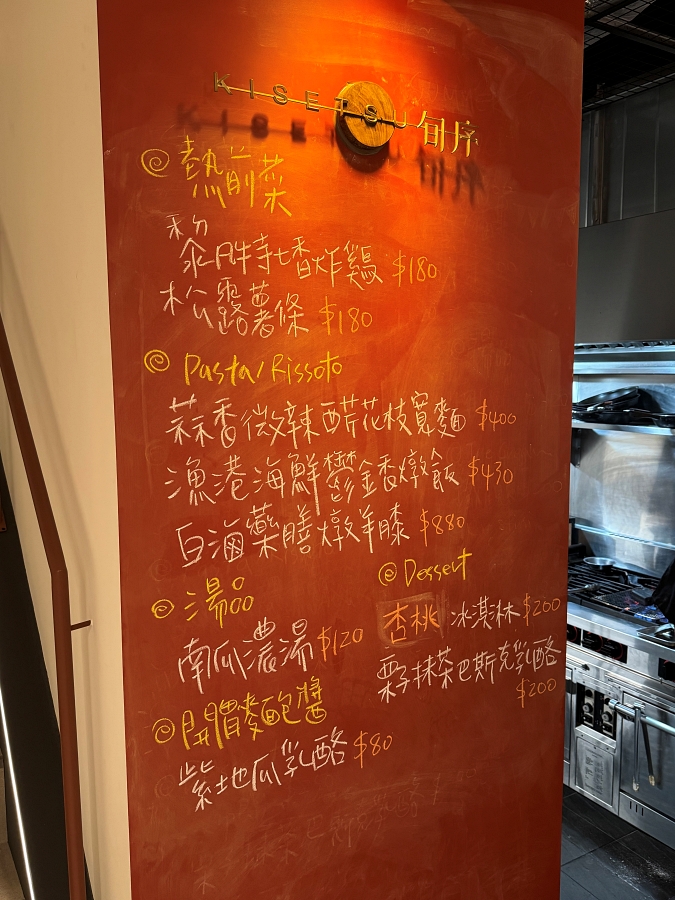 KISETSU 旬序
熱前菜
黎丹特七香炸雞 $180
松露薯條 $180
Pasta/Rissoto
蒜香微辣醋花枝寬麵 $400
漁港海鮮鬱金香燉飯 $430
白滷藥膳燉羊膝 $880
湯品
南瓜濃湯 $120
@ Dessert
杏桃 冰淇淋 $200
栗子抹茶巴斯克乳酪 $200
開胃麥麵包醬
紫地瓜乳酪 $80